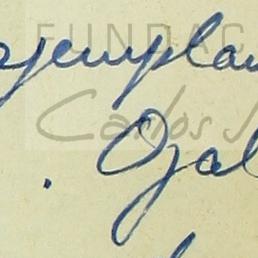 FUNDAC
ejemplar
Carlos
. Ojal